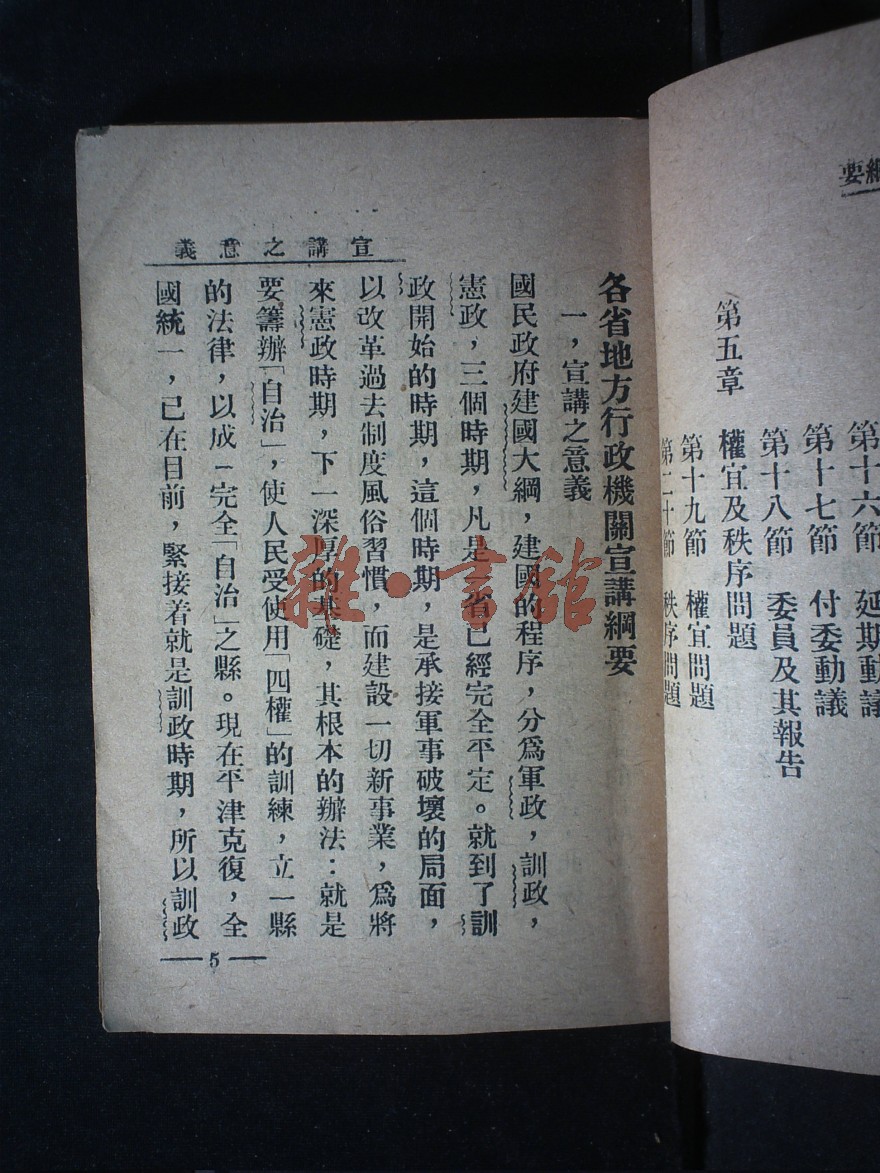 綱要
第十六節　延期動議
第十七節　付委動議
第十八節　委員及其報告
第五章　權宜及秩序問題
第十九節　權宜問題
第二十節　秩序問題
宣講之意義
各省地方行政機關宣講綱要
一，宣講之意義
國民政府建國大綱，建國的程序，分爲軍政，訓政，
憲政，三個時期，凡是一省已經完全平定。就到了訓
政開始的時期，這個時期，是承接軍事破壞的局面，
以改革過去制度風俗習慣，而建設一切新事業，爲將
來憲政時期，下一深厚的基礎，其根本的辦法：就是
要籌辦「自治」，使人民受使用「四權」的訓練，立一縣
的法律，以成一完全「自治」之縣。現在平津克復，全
國統一，已在目前，緊接着就是訓政時期，所以訓政
— 5 —
雜·書館